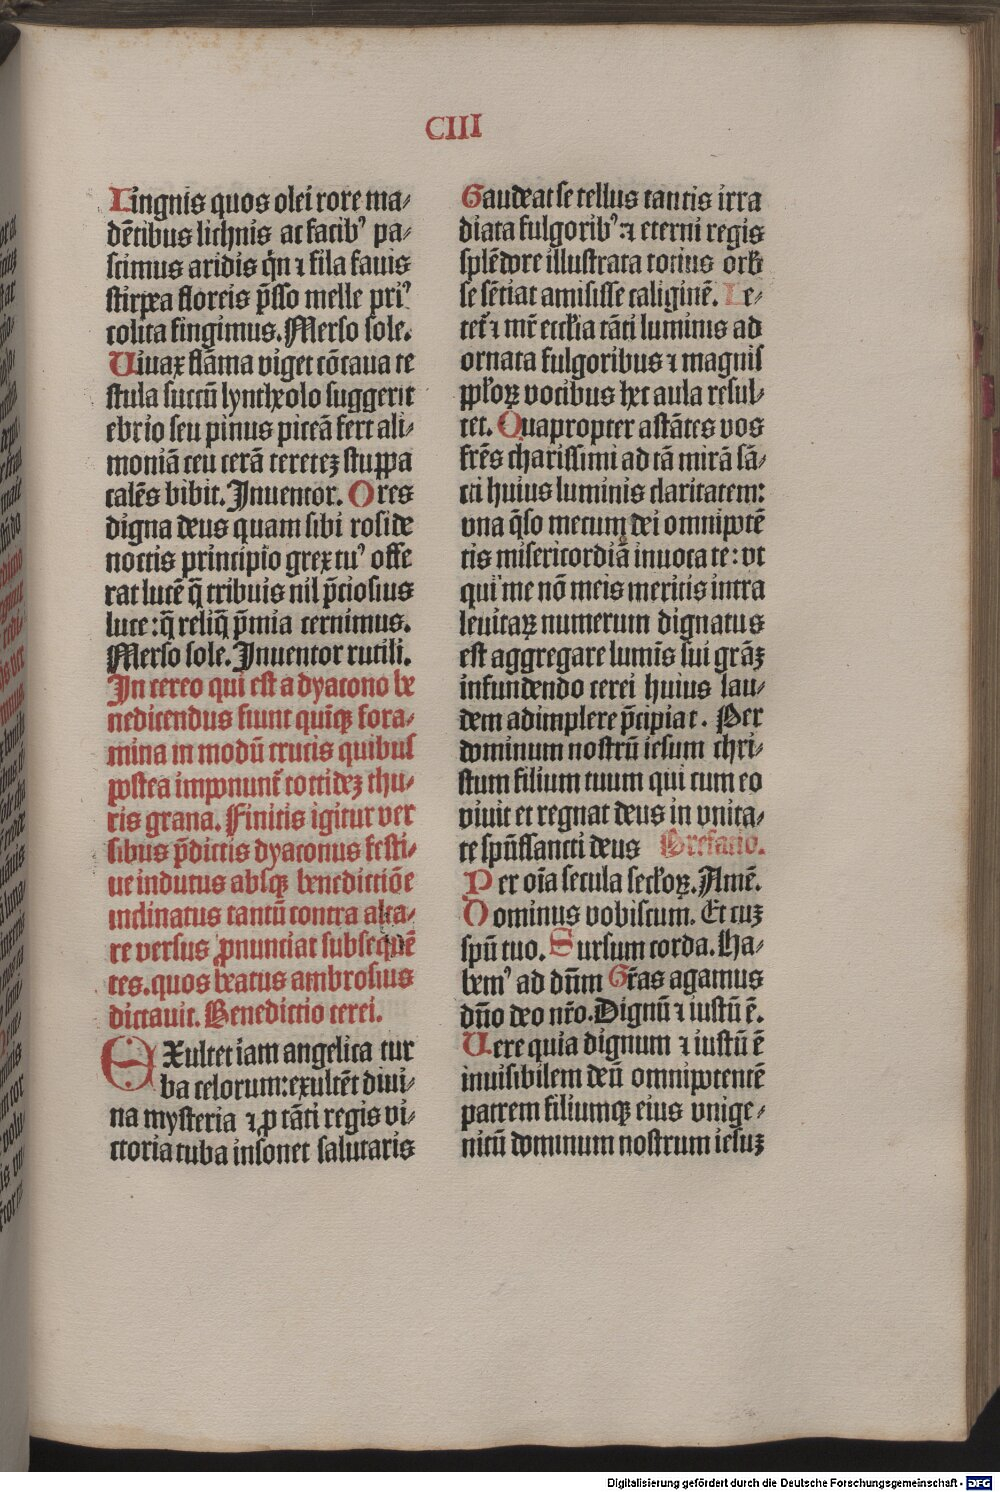 CIII
Lingnis quos olei rore ma⸗
dẽtibus lichnis ac facibꝰ pa⸗
scimus aridis qͥn ⁊ fila fauis
stirpea floreis p̃sso melle priꝰ
colita fingimus. Merso sole.
Uiuax flãma viget cõcaua te
stula succũ lyntheolo suggerit
ebrio seu pinus piceã fert ali⸗
moniã ceu cerã teretez stuppa
calẽs bibit. Inuentor. Ores
digna deus quam sibi roside
noctis principio grex tuꝰ offe
rat lucẽ q̃ tribuis nil p̃ciosius
luce: q̃ reliq̃ p̃mia cernimus.
Merso sole. Inuentor rutili.
In cereo qui est a dyacono be
nedicendus fiunt quiq꙳ fora⸗
mina in modũ crucis quibus
postea imponunt̃ totidez thu⸗
ris grana. Finitis igitur ver
sibus p̃dictis dyaconus festi⸗
ue indutus absq꙳ benedictiõe
inclinatus tantũ contra alta⸗
re versus ꝓnunciat subsequẽ
tes. quos beatus ambrosius
dictauit. Benedictio cerei.
EXultet iam angelica tur
ba celorum: exultẽt diui⸗
na mysteria ⁊ ꝓ tãti regis vi⸗
ctoria tuba insonet salutaris
Gaudeat se tellus tantis irra
diata fulgoribꝰ: ⁊ eterni regis
splẽdore illustrata totius orb̃
se sẽtiat amisisse caliginẽ. Le⸗
tet̃ ⁊ mr̃ eccl̃ia tãti luminis ad
ornata fulgoribus ⁊ magnis
pp̃loꝝ vocibus hec aula resul⸗
tet. Quapropter astãtes vos
frẽs charissimi ad tã mirã sã⸗
cti huius luminis claritatem:
vna q̃so mecum dei omnipotẽ
tis misericordiã inuocate: vt
qui me nõ meis meritis intra
leuitaꝝ numerum dignatus
est aggregare lumĩs sui grãz
infundendo cerei huius lau⸗
dem adimplere p̃cipiat. Per
dominum nostrũ iesum chri⸗
stum filium tuum qui cum eo
viuit et regnat deus in vnita⸗
te spũssancti deus Prefatio.
Per oĩa secula secl̃oꝝ. Amẽ.
Dominus vobiscum. Et cuz
spũ tuo. Sursum corda. Ha⸗
bemꝰ ad dñm Gr̃as agamus
dño deo nr̃o. Dignũ ⁊ iustũ ẽ.
Uere quia dignum ⁊ iustũ ẽ
inuisibilem deũ omnipotentẽ
patrem filiumq꙳ eius vnige⸗
nicũ dominum nostrum iesuz
Digitalisierung gefördert durch die Deutsche Forschungsgemeinschaft - DFG